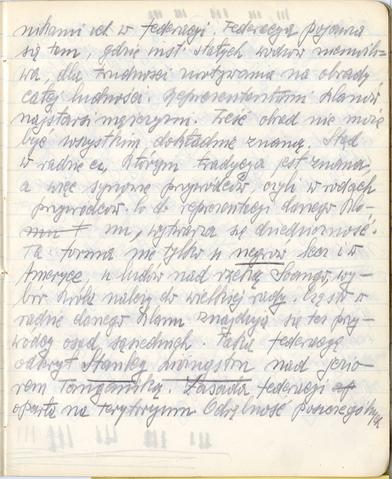 nikami ich w federacji. Federacja pojawia
się tam, gdzie inst. stałych wodzów niemożli-
wa, dla trudności wezwania na obrady
całej ludności. Reprezentantami klanów
najstarsi mężczyźni. Treść obrad nie może
być wszystkim dokładnie znaną. Stąd
w radzie ci, którym tradycja jest znana
a więc synowie przywódców, czyli w rodach
przywódców co do reprezentacji danego kla-
nu, wytwarza się dziedziczność.
Ta forma nie tylko u negrów lecz i w
Ameryce. u ludów nad rzeką Ibango, wy-
bór króla należy do wielkiej rady. Często w
radzie danego klanu znajdują się też przy-
wódcy osad sąsiednich. Taką federację
odkrył Stanley Livingston nad jezio-
rem Tanganiką. Zasada federacji
oparta na terytorjum Odrębność poszczególnych